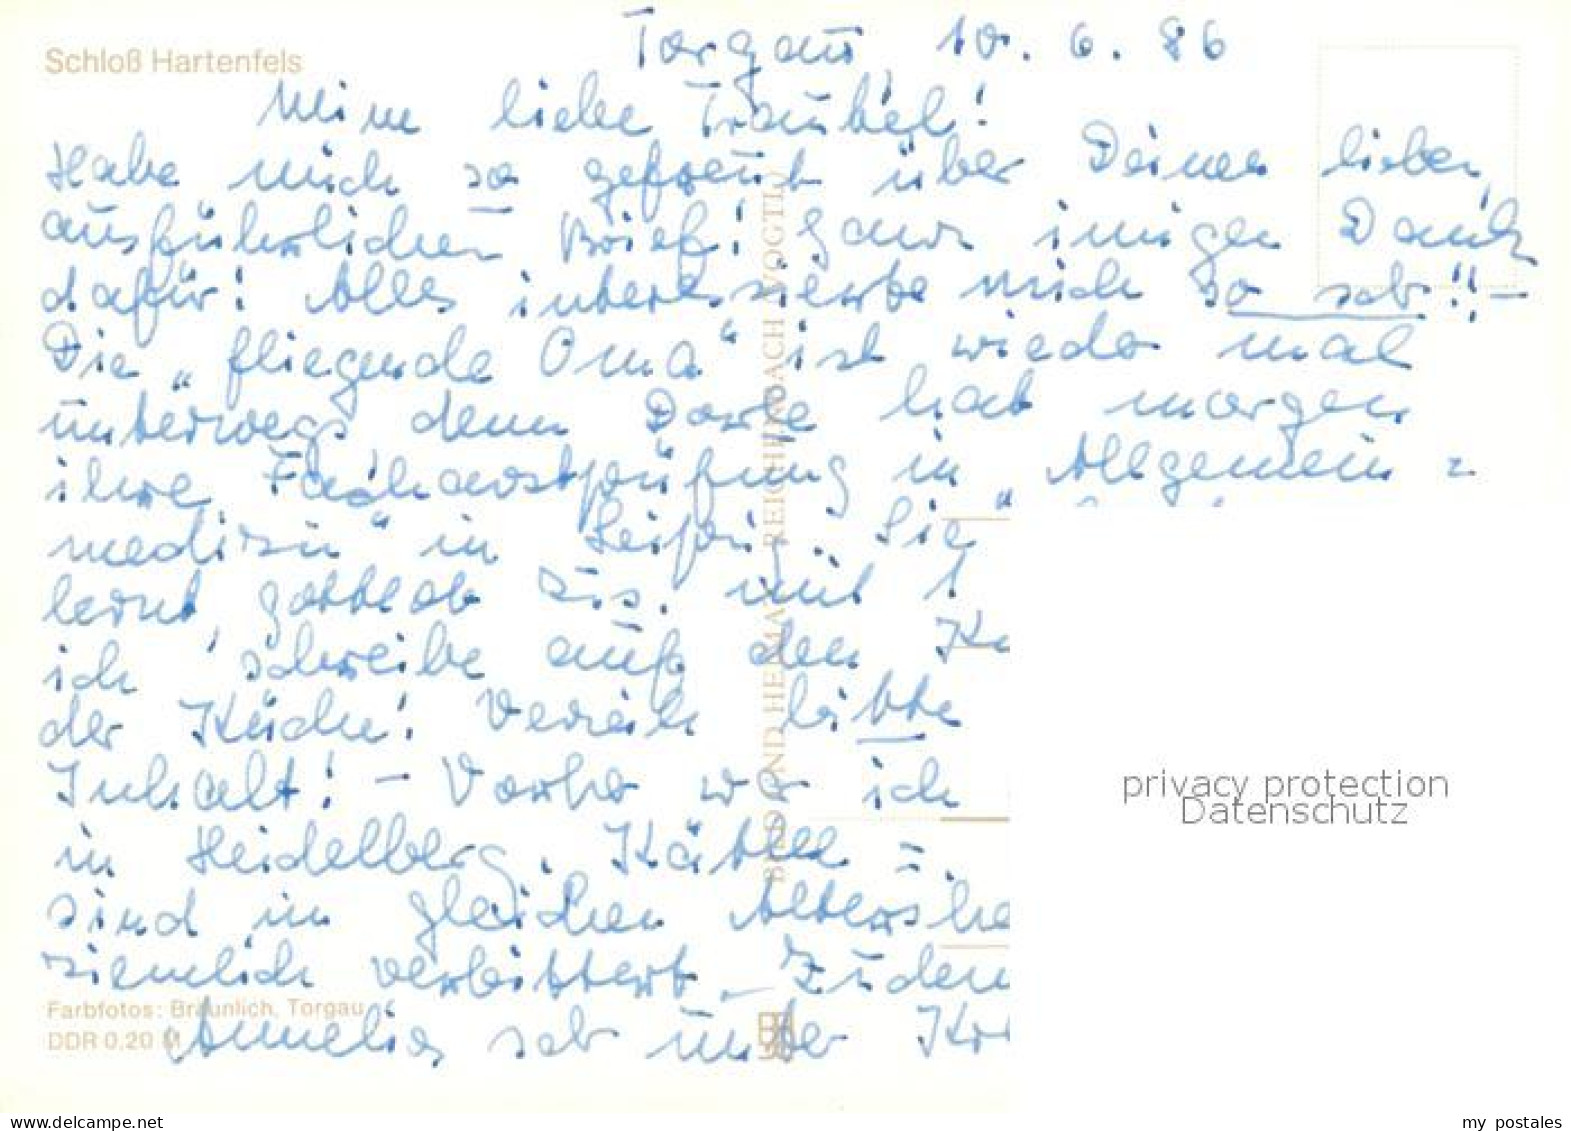 Schloß Hartenfels
Torgau, 10. 6. 86
Meine liebe Traudel!
Habe mich so gefreut über Deinen lieben,
ausführlichen Brief! Ganz innigen Dank
dafür! Alles interessierte mich so sehr!! -
Die „fliegende Oma" ist wieder mal
unterwegs denn Dorle hat morgen
ihre Facharztprüfung in „Allgemein=
medizin" in Leipzig. Sie
lernt, gottlob zus. mit 1
ich schreibe auf den
der Küche! Verzeih bitte
Inhalt! - Vorher war ich
in Heidelberg.
sind im gleichen
ziemlich verbittert. Zudem
Annelies sehr unter
Farbfotos: Bräunlich, Torgau
DDR 0,20 M
BILD UND HEIMAT REICHENBACH (VOGTL)
privacy protection
Datenschutz
https://www.delcampe.net
my_postales